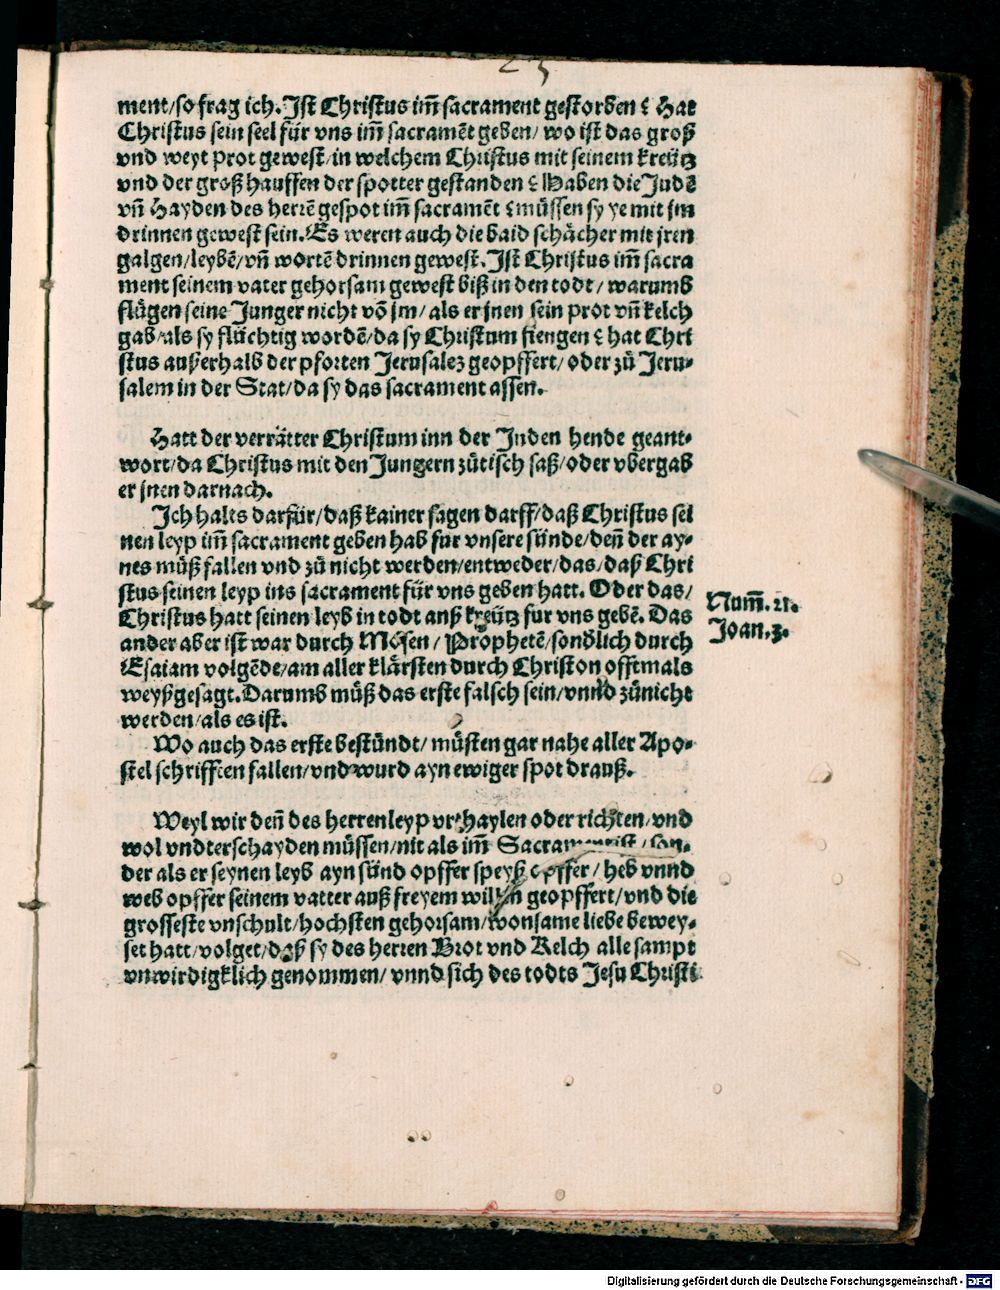 23
ment/so frag ich. Ist Christus im̃ sacrament gestorben? Hat
Christus sein seel für vns im̃ sacramẽt geben/ wo ist das groß
vnd weyt prot gewest/in welchem Christus mit seinem kreütz
vnd der groß hauffen der spotter gestanden? Haben die Judẽ
vñ Hayden des herrẽ gespot im̃ sacramẽt? müssen sy ye mit jm
drinnen gewest sein. Es weren auch die baid schächer mit jren
galgen/leybẽ/vñ wortẽ drinnen gewest. Ist Christus im̃ sacra
ment seinem vater gehorsam gewest biß in den todt/ warumb
flügen seine Junger nicht võ jm/ als er jnen sein prot vñ kelch
gab/als sy flüchtig wordẽ/da sy Christum fiengen? hat Chri
stus ausserhalb der pforten Jerusalez geopffert/ oder zů Jeru-
salem in der Stat/da sy das sacrament assen.
Hatt der verrätter Christum inn der Juden hende geant-
wort/da Christus mit den Jungern zů tisch saß/oder vbergab
er jnen darnach.
Ich halts darfür/daß kainer sagen darff/daß Christus sei
nen leyp im̃ sacrament geben hab fur vnsere sünde/deñ der ay-
nes můß fallen vnd zů nicht werden/entweder/das/daß Chri
stus seinen leyp ins sacrament für vns geben hatt. Oder das/
Christus hatt seinen leyb in todt anß kreütz fur vns gebẽ. Das
ander aber ist war durch Mosen/ Prophetẽ/sonðlich durch
Esaiam volgẽde/am aller klärsten durch Christon offtmals
weyßgesagt. Darumb můß das erste falsch sein/vnnd zůnicht
werden/als es ist.
Wo auch das erste bestündt/ müsten gar nahe aller Apo-
stel schrifften fallen/vnd wurd ayn ewiger spot drauß.
Weyl wir deñ des herren leyp vrthaylen oder richten/vnd
wol vndterschayden müssen/nit als im̃ Sacrament ist/son-
der als er seynen leyb ayn sünd opffer speyß opffer/ heb vnnd
web opffer seinem vatter auß freyem willen geopffert/vnd die
grosseste vnschult/hochsten gehorsam/wonsame liebe bewey-
set hatt/volget/daß sy des herren Brot vnd Kelch alle sampt
vnwirdigklich genommen/ vnnd sich des todts Jesu Christi
Num̃. 21.
Joan. 3.
Digitalisierung gefördert durch die Deutsche Forschungsgemeinschaft - DFG